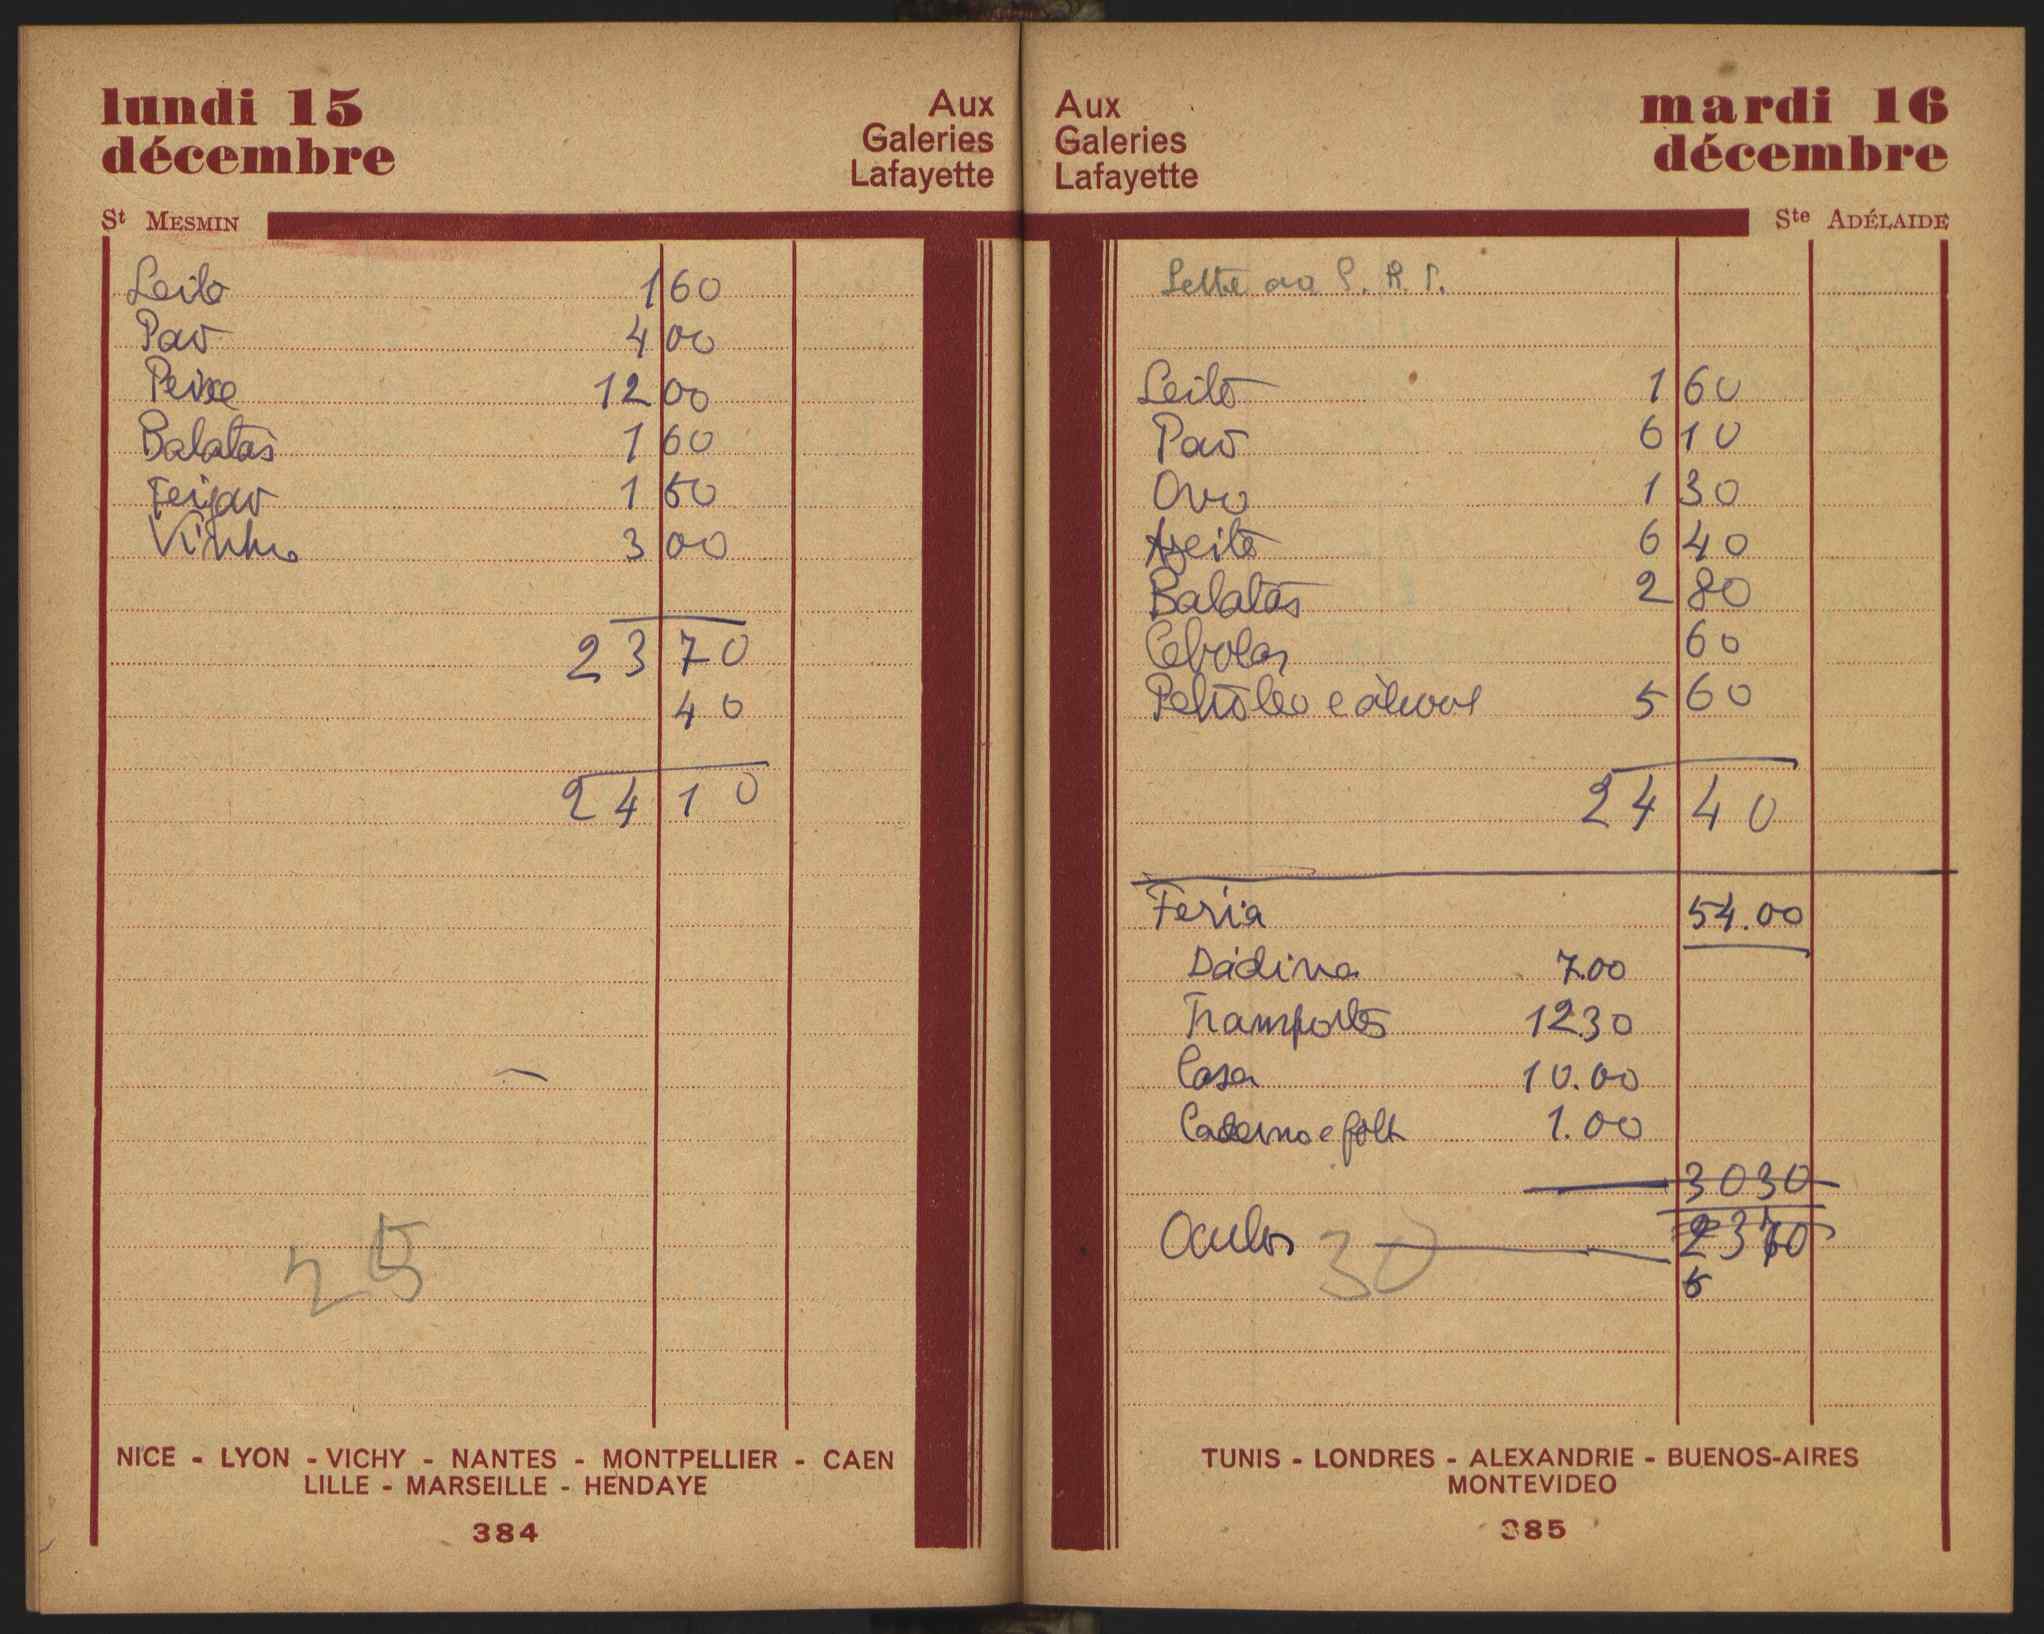 lundi 15
décembre
Aux
Galeries
Lafayette
St MESMIN
Leite 1 60
Pão 4 00
Peixe 12 00
Batatas 1 60
Feijão 1 50
Vinho 3 00
23 70
40
24 10
25
NICE - LYON - VICHY - NANTES - MONTPELLIER - CAEN
LILLE - MARSEILLE - HENDAYE
384
Aux
Galeries
Lafayette
mardi 16
décembre
Ste ADÉLAIDE
Leite 1 60
Pão 6 10
Ovo 1 30
Azeite 6 40
Batatas 2 80
Cebolas 60
Petróleo e álcool 5 60
24 40
Feria 54.00
Dádiva 7.00
Transportes 12.30
Casa 10.00
Caderno e 1.00
3030
Oculos 30 2370
TUNIS - LONDRES - ALEXANDRIE - BUENOS-AIRES
MONTEVIDEO
385